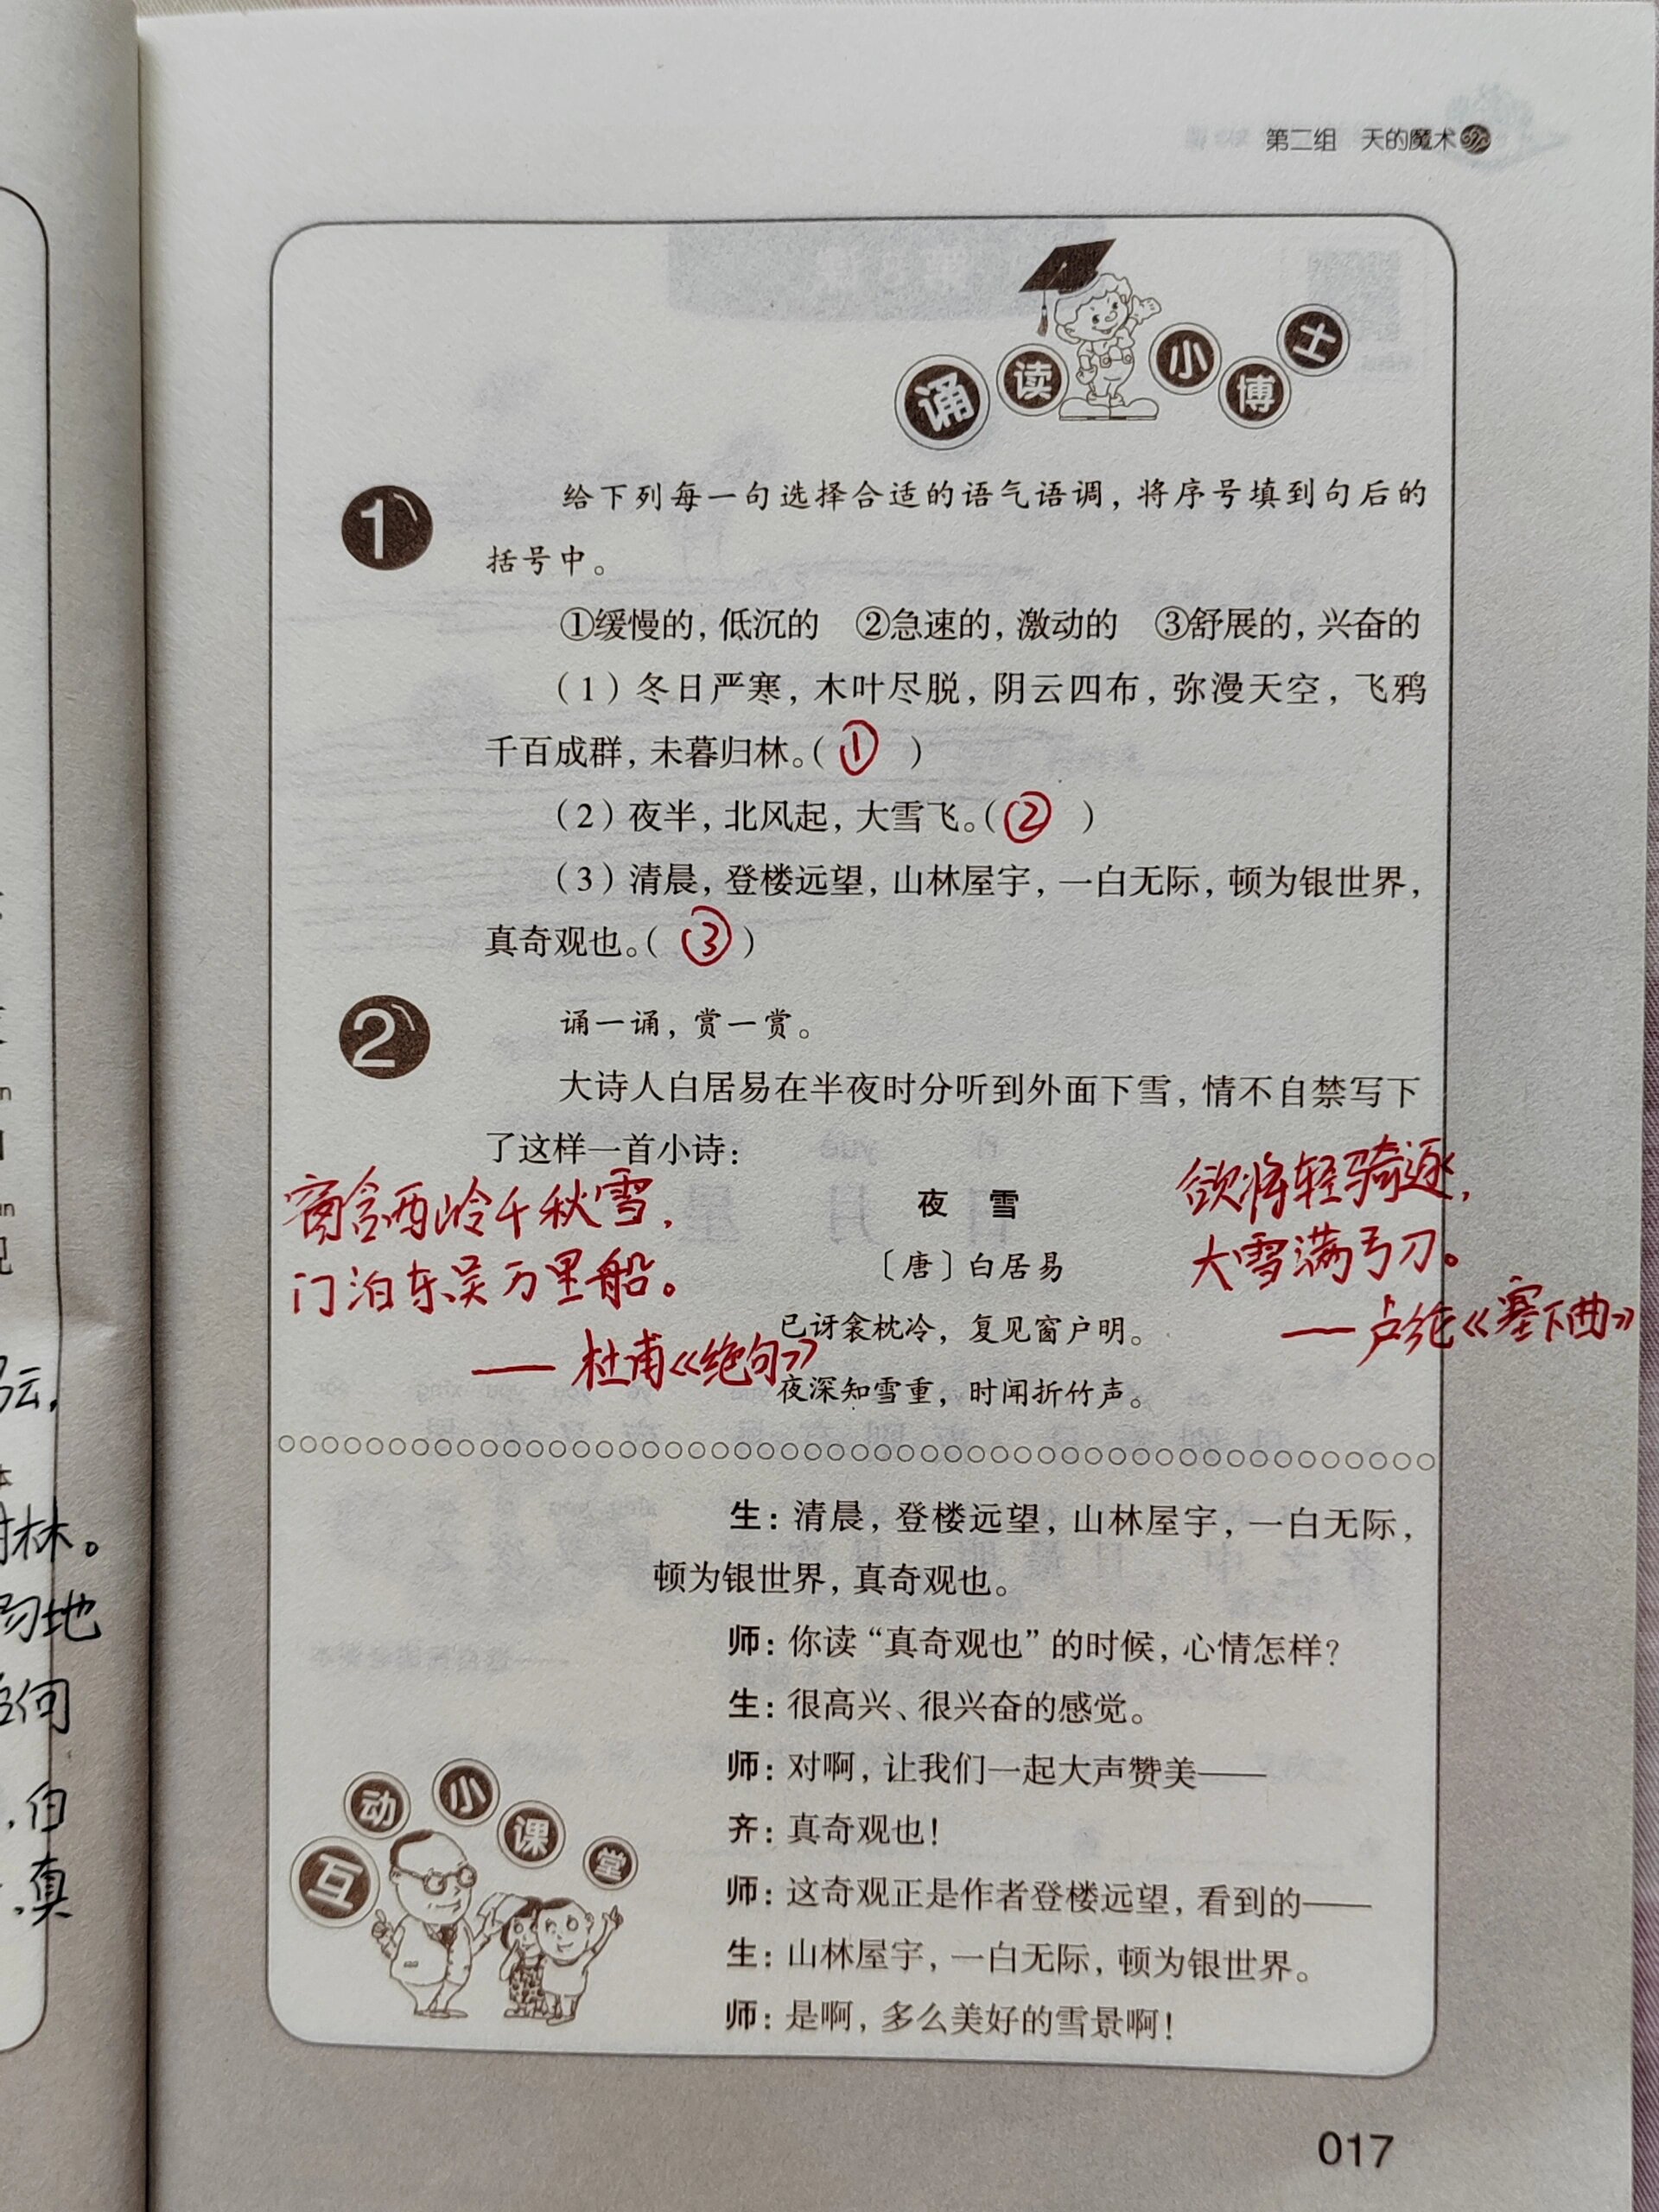 第二组 天的魔术
诵读小博士
1
给下列每一句选择合适的语气语调，将序号填到句后的
括号中。
①缓慢的，低沉的 ②急速的，激动的 ③舒展的，兴奋的
（1）冬日严寒，木叶尽脱，阴云四布，弥漫天空，飞鸦
千百成群，未暮归林。（① ）
（2）夜半，北风起，大雪飞。（② ）
（3）清晨，登楼远望，山林屋宇，一白无际，顿为银世界，
真奇观也。（ ③ ）
2
诵一诵，赏一赏。
大诗人白居易在半夜时分听到外面下雪，情不自禁写下
了这样一首小诗：
夜 雪
〔唐〕白居易
已讶衾枕冷，复见窗户明。
夜深知雪重，时闻折竹声。
窗含西岭千秋雪，
门泊东吴万里船。
——杜甫《绝句》
欲将轻骑逐，
大雪满弓刀。
——卢纶《塞下曲》
互动小课堂
生：清晨，登楼远望，山林屋宇，一白无际，
顿为银世界，真奇观也。
师：你读“真奇观也”的时候，心情怎样？
生：很高兴、很兴奋的感觉。
师：对啊，让我们一起大声赞美——
齐：真奇观也！
师：这奇观正是作者登楼远望，看到的——
生：山林屋宇，一白无际，顿为银世界。
师：是啊，多么美好的雪景啊！
017
林。
地
何
，白
真